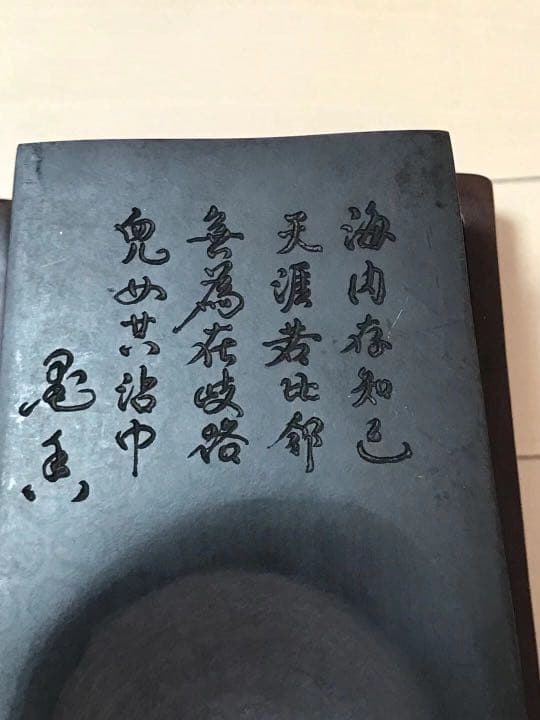 海内存知己
天涯若比邻
無為在歧路
兒女共沾巾
墨香